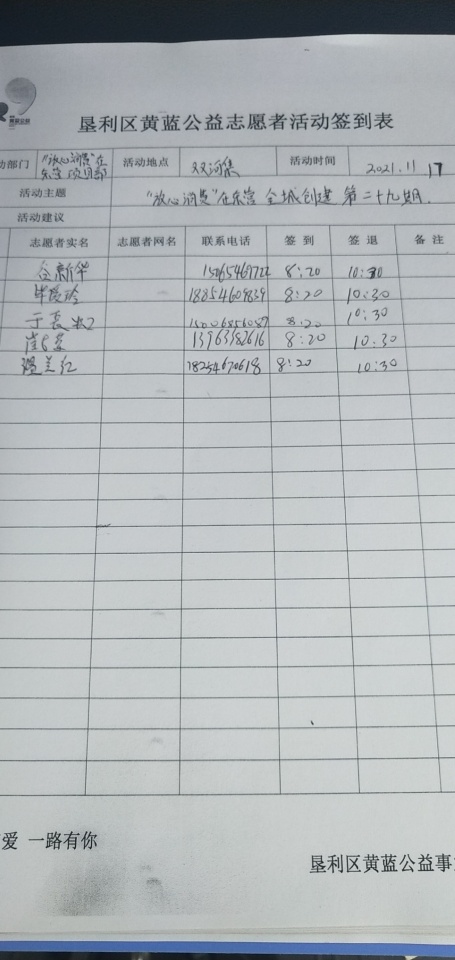 垦利区黄蓝公益志愿者活动签到表
动部门 "放心消费"在东营项目部 活动地点 双河集 活动时间 2021.11 17
活动主题 "放心消费"在东营 全城创建 第二十九期.
活动建议
志愿者实名 志愿者网名 联系电话 签到 签退 备注
新华 8:20 10:30
18854609839 8:20 10:30
于 8:20 10:30
8:20 10:30
兰红 18254670618 8:20 10:30
爱 一路有你
垦利区黄蓝公益事